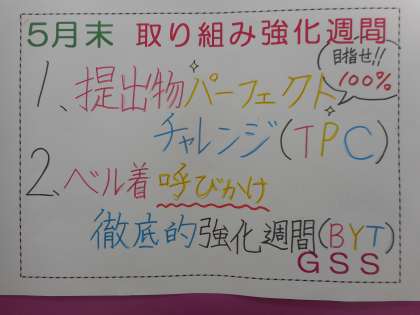 5月末 取り組み強化週間
目指せ!!
100%
1、提出物パーフェクト
チャレンジ(TPC)
2、ベル着呼びかけ
徹底的強化週間(BYT)
GSS